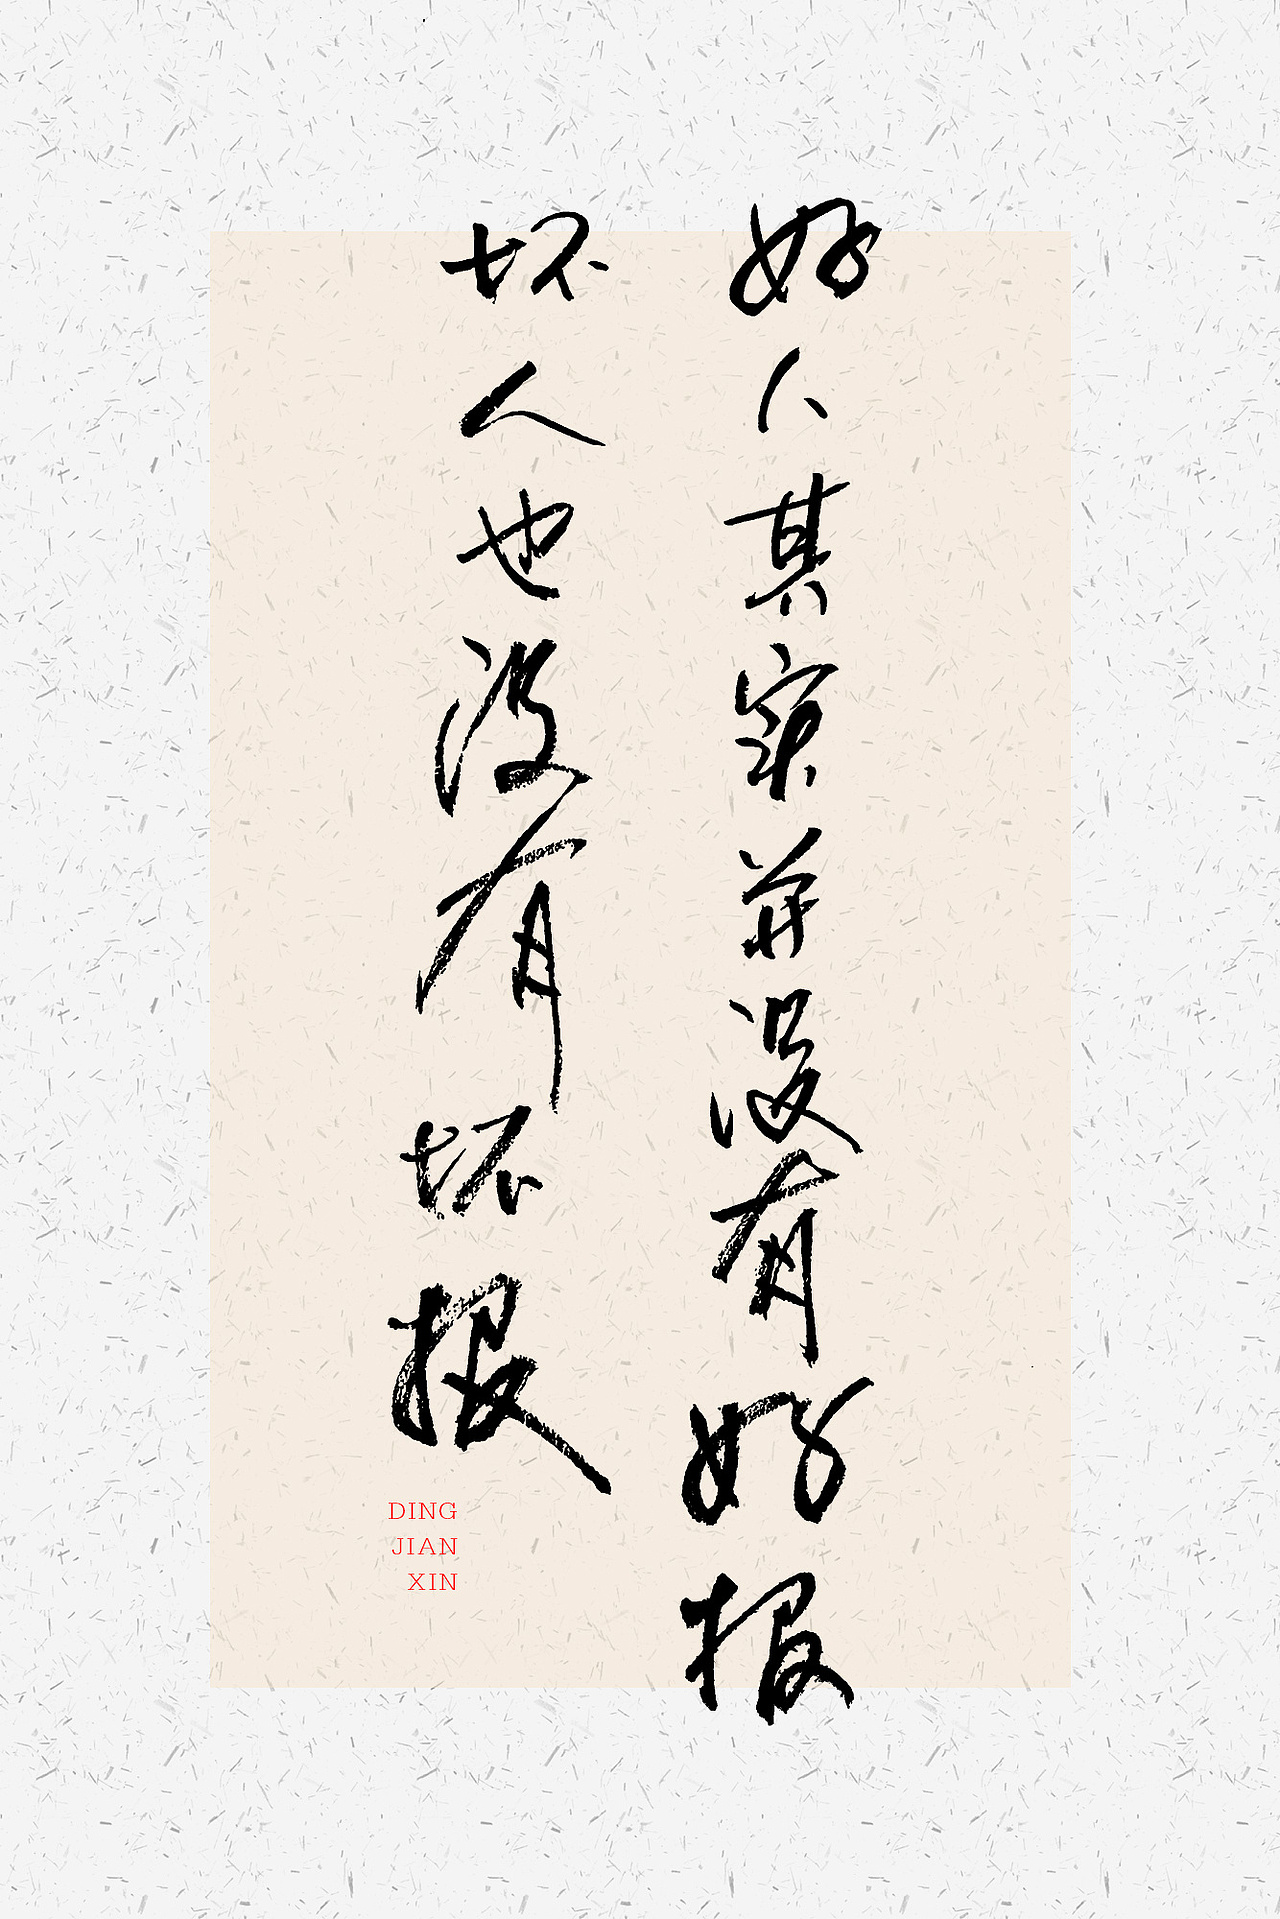 好人其实并没有好报
坏人也没有坏报
DING
JIAN
XIN